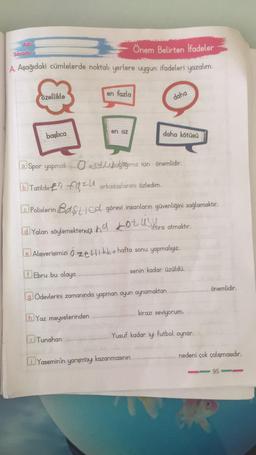 Önem Belirten İfadeler
A. Aşağıdaki cümlelerde noktalı yerlere uygun ifadeleri yazalım.
özellikle
en fazla
daha
başlıca
en az
daha kötüsü
a) Spor yapmak için önemlidir.
b) Tatilde en fazla arkadaşlarımı özledim.
c) Polislerin Başlıca görevi insanların güvenliğini sağlamaktır.
d) Yalan söylemekten iftira atmaktır.
e) Alışverişimizi özellikle hafta sonu yapmalıyız.
f) Ebru bu olaya senin kadar üzüldü.
g) Ödevlerini zamanında yapman oyun oynamaktan önemlidir.
h) Yaz meyvelerinden kirazı seviyorum.
ı) Tunahan Yusuf kadar iyi futbol oynar.
i) Yasemin'in yarışmayı kazanmasının nedeni çok çalışmasıdır.
95